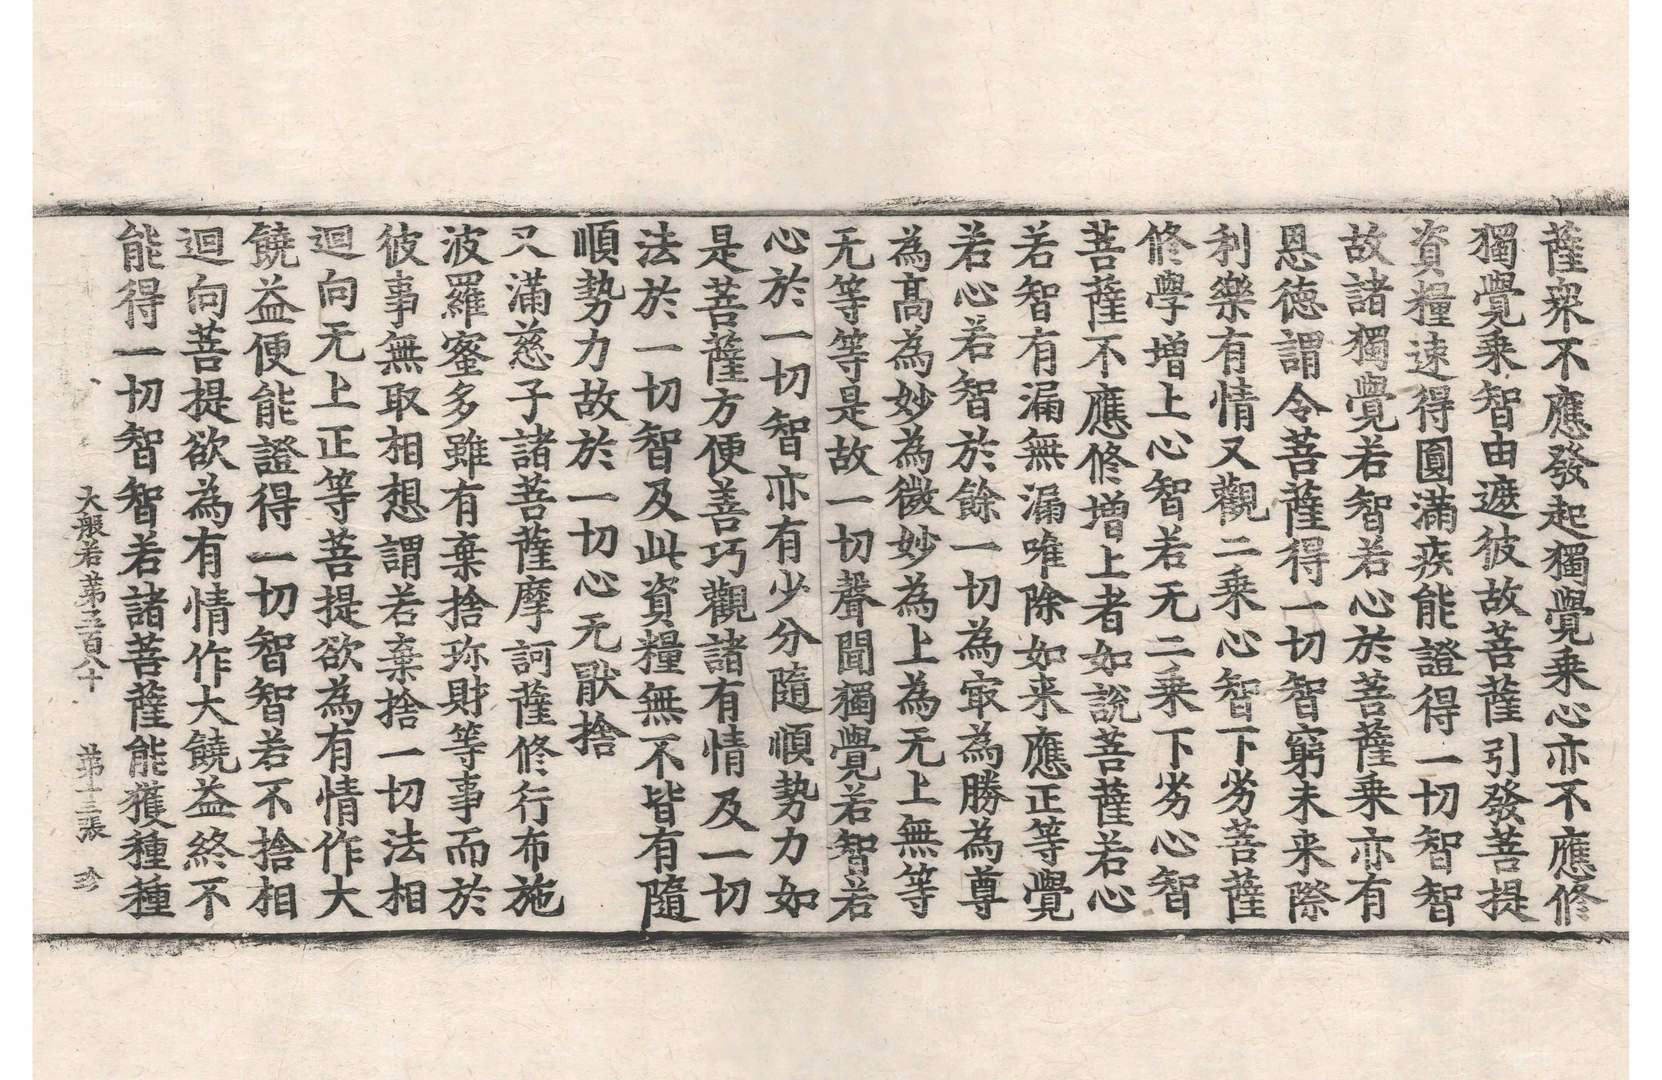 薩衆不應發起獨覺乘心亦不應修
獨覺乘智由遮彼故菩薩引發菩提
資糧速得圓滿疾能證得一切智智
故諸獨覺若智若心於菩薩乘亦有
恩德謂令菩薩得一切智窮未来際
利樂有情又觀二乘心智下劣菩薩
修學增上心智若无二乘下劣心智
菩薩不應修增上者如說菩薩若心
若智有漏無漏唯除如来應正等覺
若心若智於餘一切為㝡為勝為尊
為髙為妙為微妙為上為无上無等
无等等是故一切聲聞獨覺若智若
心於一切智亦有少分隨順勢力如
是菩薩方便善巧觀諸有情及一切
法於一切智及此資糧無不皆有隨
順勢力故於一切心无猒捨
又滿慈子諸菩薩摩訶薩修行布施
波羅蜜多雖有棄捨珎財等事而於
彼事無取相想謂若棄捨一切法相
迴向无上正等菩提欲為有情作大
饒益便能證得一切智智若不捨相
迴向菩提欲為有情作大饒益終不
能得一切智智若諸菩薩能獲種種
大般若第五百八十 第十三張 珎